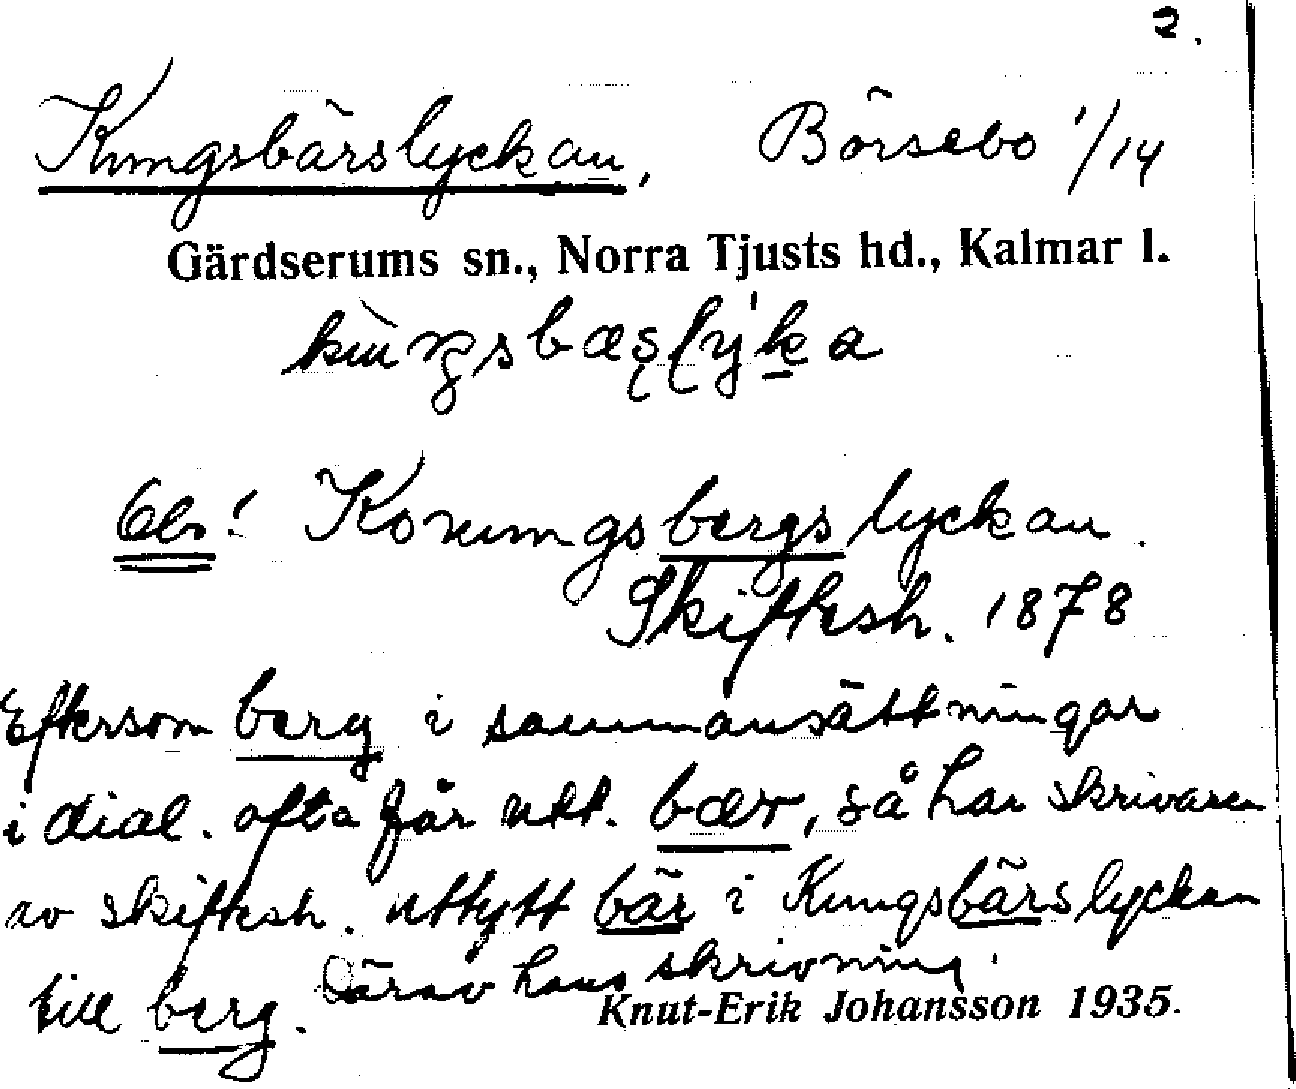 2.
Kungsbärslyckan, Börsebo 1/14
Gärdserums sn., Norra Tjusts hd., Kalmar l.
Obs! Konungsbergslyckan.
Skiftesh. 1878
Eftersom berg i sammansättningar
i dial. ofta får utt. bær, så har skrivaren
av skiftesh. uttytt bär i Kungsbärslyckan
till berg. Därav hans skrivning.
Knut-Erik Johansson 1935.